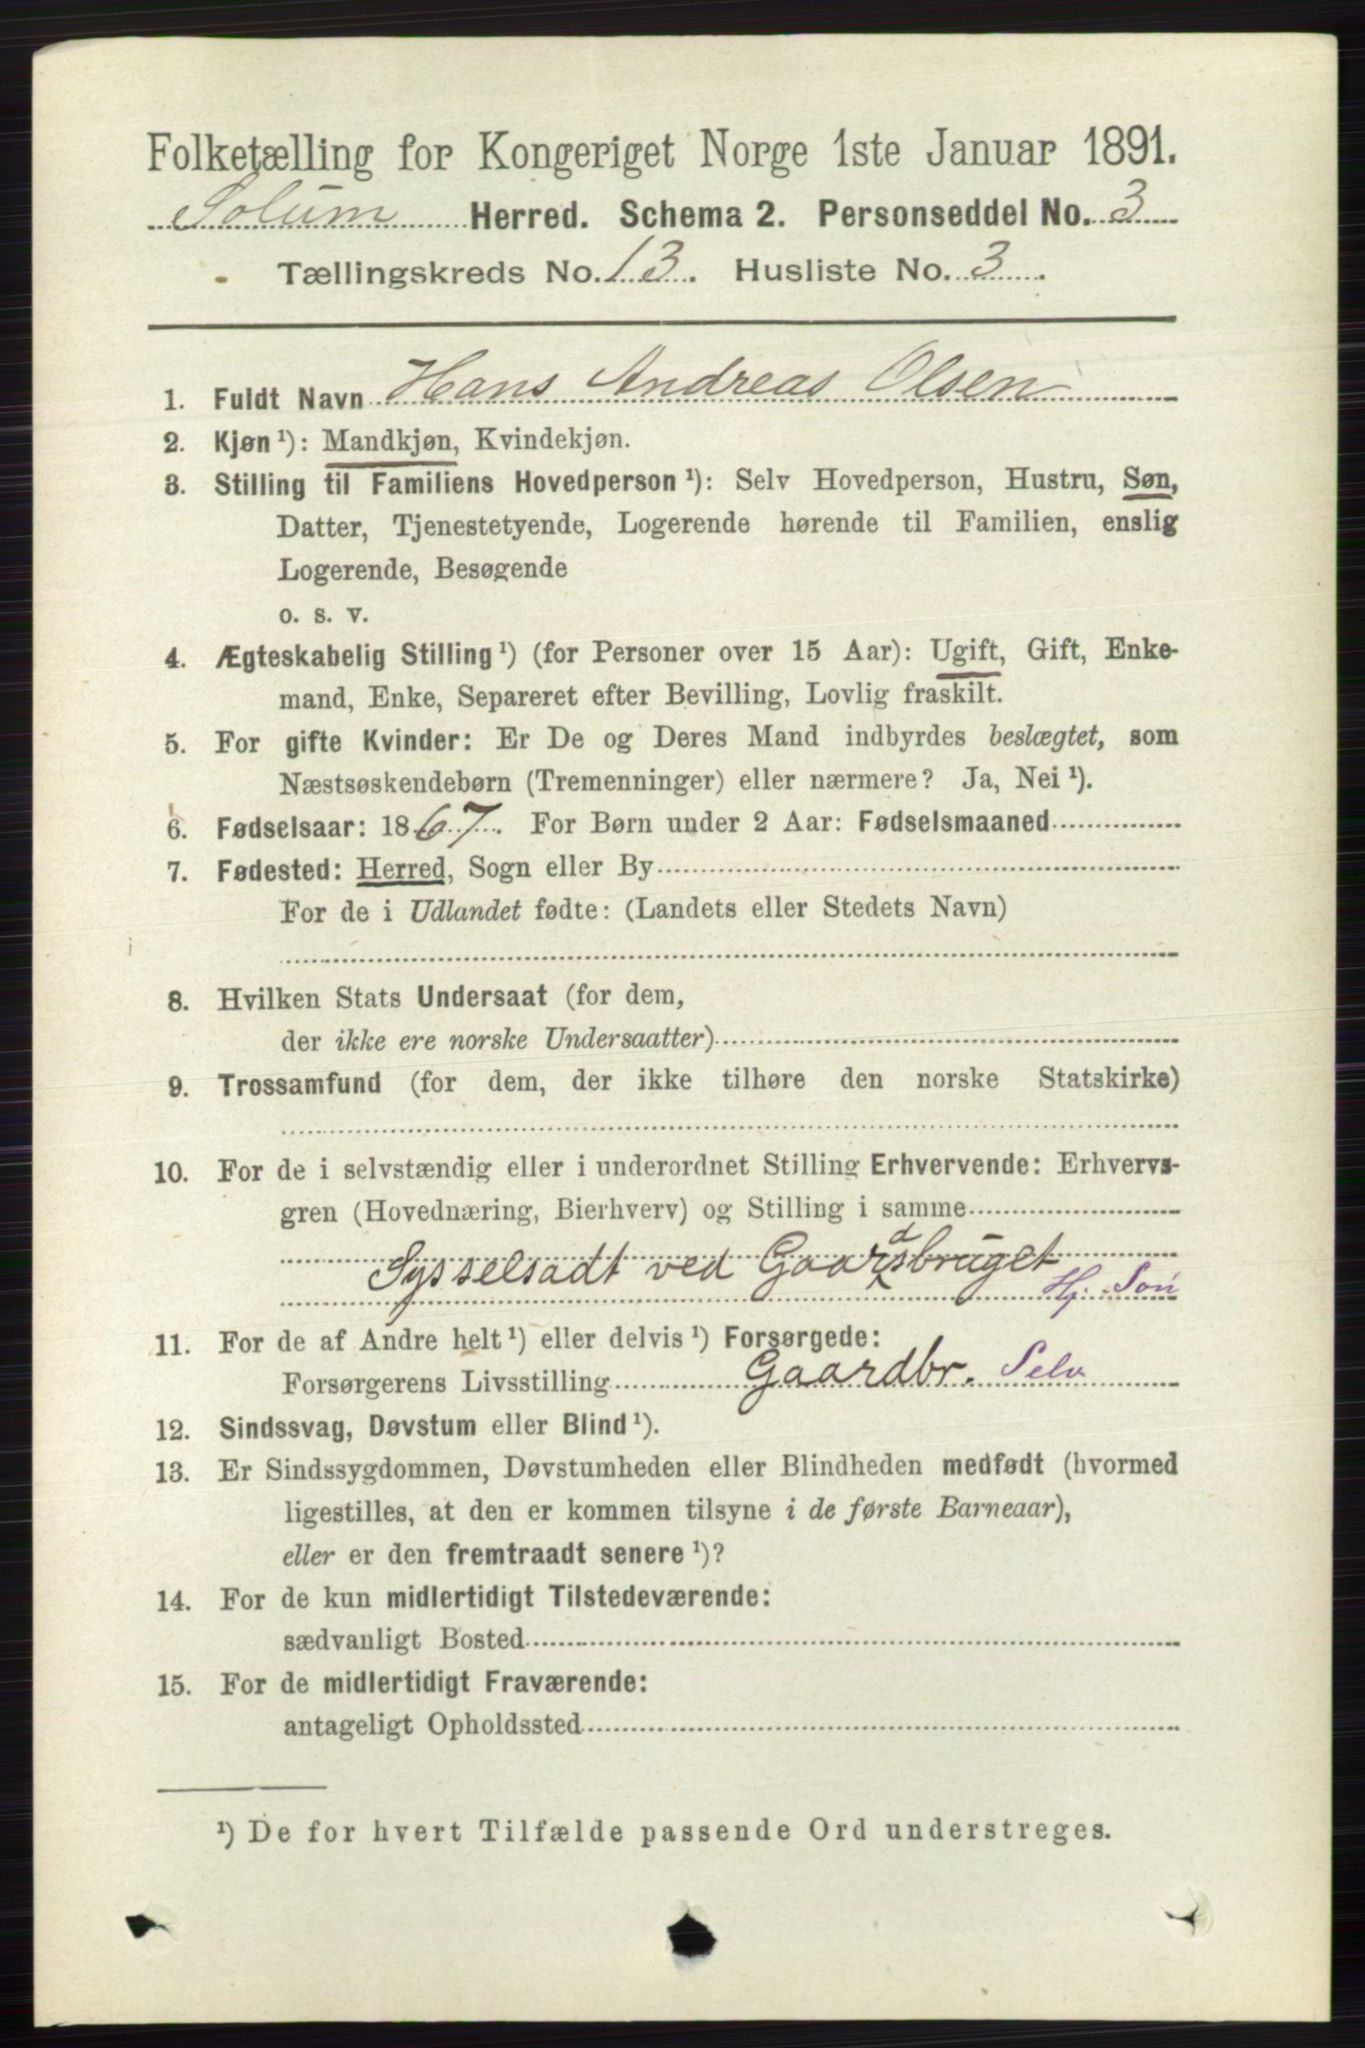 Folketælling for Kongeriget Norge 1ste Januar 1891.
Solum Herred. Schema 2. Personseddel No. 3
Tællingskreds No. 13. Husliste No. 3.
1. Fuldt Navn Hans Andreas Olsen
2. Kjøn ¹): Mandkjøn, Kvindekjøn.
3. Stilling til Familiens Hovedperson ¹): Selv Hovedperson, Hustru, Søn,
Datter, Tjenestetyende, Logerende hørende til Familien, enslig
Logerende, Besøgende
o. s. v.
4. Ægteskabelig Stilling ¹) (for Personer over 15 Aar): Ugift, Gift, Enke-
mand, Enke, Separeret efter Bevilling, Lovlig fraskilt.
5. For gifte Kvinder: Er De og Deres Mand indbyrdes beslægtet, som
Næstsøskendebørn (Tremenninger) eller nærmere? Ja, Nei ¹).
6. Fødselsaar: 1867. For Børn under 2 Aar: Fødselsmaaned
7. Fødested: Herred, Sogn eller By
For de i Udlandet fødte: (Landets eller Stedets Navn)
8. Hvilken Stats Undersaat (for dem,
der ikke ere norske Undersaatter)
9. Trossamfund (for dem, der ikke tilhøre den norske Statskirke)
10. For de i selvstændig eller i underordnet Stilling Erhvervende: Erhvervs-
gren (Hovednæring, Bierhverv) og Stilling i samme
Sysselsadt ved Gaardsbruget
Hj. Søn
11. For de af Andre helt ¹) eller delvis ¹) Forsørgede:
Forsørgerens Livsstilling Gaardbr. Selv
12. Sindssvag, Døvstum eller Blind ¹).
13. Er Sindssygdommen, Døvstumheden eller Blindheden medfødt (hvormed
ligestilles, at den er kommen tilsyne i de første Barneaar),
eller er den fremtraadt senere ¹)?
14. For de kun midlertidigt Tilstedeværende:
sædvanligt Bosted
15. For de midlertidigt Fraværende:
antageligt Opholdssted
¹) De for hvert Tilfælde passende Ord understreges.